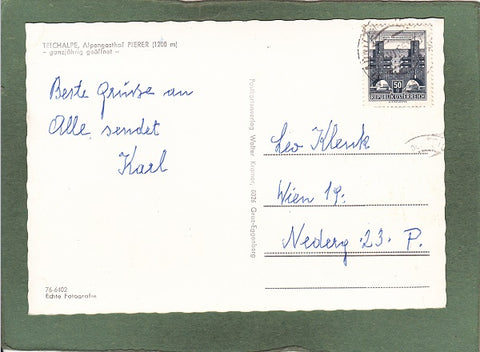 TEICHALPE, Alpengasthof PIERER (1200 m)
- ganzjährig geöffnet -
Beste Grüsse an
Alle sendet
Karl
76-6102
Echte Fotografie
Walter Kramer, 8026 Graz-Eggenberg
50
REPUBLIK ÖSTERREICH
Leo Klenk
Wien 19.
Nederg. 23. P.